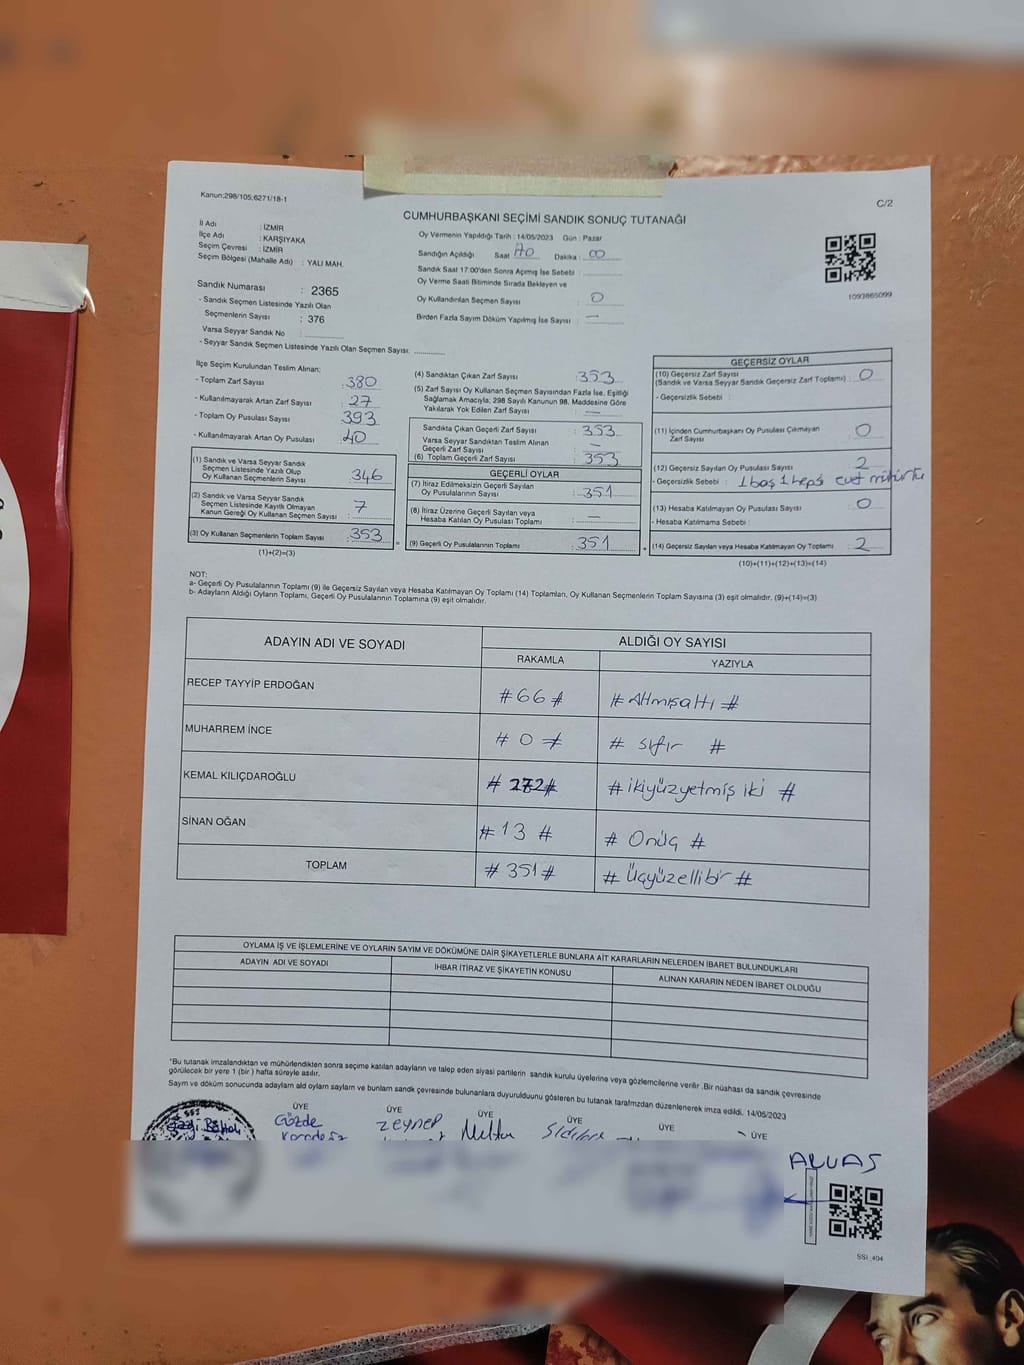 Kanun:298/105;6271/18-1
C/2
CUMHURBAŞKANI SEÇİMİ SANDIK SONUÇ TUTANAĞI
İl Adı : İZMİR
İlçe Adı : KARŞIYAKA
Seçim Çevresi : İZMİR
Seçim Bölgesi (Mahalle Adı) : YALI MAH.
Sandık Numarası : 2365
- Sandık Seçmen Listesinde Yazılı Olan
Seçmenlerin Sayısı : 376
Varsa Seyyar Sandık No :
- Seyyar Sandık Seçmen Listesinde Yazılı Olan Seçmen Sayısı:
Oy Vermenin Yapıldığı Tarih : 14/05/2023 Gün : Pazar
Sandığın Açıldığı Saat Dakika : 00
Sandık Saat 17:00'den Sonra Açımış İse Sebebi :
Oy Verme Saati Bitiminde Sırada Bekleyen ve
Oy Kullandırılan Seçmen Sayısı : 0
Birden Fazla Sayım Döküm Yapılmış İse Sayısı : —
1093865099
İlçe Seçim Kurulundan Teslim Alınan:
- Toplam Zarf Sayısı : 380
- Kullanılmayarak Artan Zarf Sayısı : 27
- Toplam Oy Pusulası Sayısı : 393
- Kullanılmayarak Artan Oy Pusulası : 40
(1) Sandık ve Varsa Seyyar Sandık
Seçmen Listesinde Yazılı Olup
Oy Kullanan Seçmenlerin Sayısı : 346
(2) Sandık ve Varsa Seyyar Sandık
Seçmen Listesinde Kayıtlı Olmayan
Kanun Gereği Oy Kullanan Seçmen Sayısı : 7
(3) Oy Kullanan Seçmenlerin Toplam Sayısı : 353
(1)+(2)=(3)
(4) Sandıktan Çıkan Zarf Sayısı : 353
(5) Zarf Sayısı Oy Kullanan Seçmen Sayısından Fazla İse, Eşitliği
Sağlamak Amacıyla; 298 Sayılı Kanunun 98. Maddesine Göre
Yakılarak Yok Edilen Zarf Sayısı : —
Sandıkta Çıkan Geçerli Zarf Sayısı : 353
Varsa Seyyar Sandıktan Teslim Alınan
Geçerli Zarf Sayısı : —
(6) Toplam Geçerli Zarf Sayısı : 353
GEÇERLİ OYLAR
(7) İtiraz Edilmeksizin Geçerli Sayılan
Oy Pusulalarının Sayısı : 351
(8) İtiraz Üzerine Geçerli Sayılan veya
Hesaba Katılan Oy Pusulası Toplamı : —
(9) Geçerli Oy Pusulalarının Toplamı : 351
GEÇERSİZ OYLAR
(10) Geçersiz Zarf Sayısı
(Sandık ve Varsa Seyyar Sandık Geçersiz Zarf Toplamı) : 0
- Geçersizlik Sebebi :
(11) İçinden Cumhurbaşkanı Oy Pusulası Çıkmayan
Zarf Sayısı : 0
(12) Geçersiz Sayılan Oy Pusulası Sayısı : 2
- Geçersizlik Sebebi : 1 boş 1 hepsi evet mühürlü
(13) Hesaba Katılmayan Oy Pusulası Sayısı : 0
- Hesaba Katılmama Sebebi :
(14) Geçersiz Sayılan veya Hesaba Katılmayan Oy Toplamı : 2
(10)+(11)+(12)+(13)=(14)
NOT:
a- Geçerli Oy Pusulalarının Toplamı (9) ile Geçersiz Sayılan veya Hesaba Katılmayan Oy Toplamı (14) Toplamları, Oy Kullanan Seçmenlerin Toplam Sayısına (3) eşit olmalıdır. (9)+(14)=(3)
b- Adayların Aldığı Oyların Toplamı, Geçerli Oy Pusulalarının Toplamına (9) eşit olmalıdır.
ADAYIN ADI VE SOYADI ALDIĞI OY SAYISI
RAKAMLA YAZIYLA
RECEP TAYYİP ERDOĞAN # 66 # # Altmışaltı #
MUHARREM İNCE # 0 # # sıfır #
KEMAL KILIÇDAROĞLU # 272 # # ikiyüzyetmiş iki #
SİNAN OĞAN # 13 # # Onüç #
TOPLAM # 351 # # Üçyüzellibir #
OYLAMA İŞ VE İŞLEMLERİNE VE OYLARIN SAYIM VE DÖKÜMÜNE DAİR ŞİKAYETLERLE BUNLARA AİT KARARLARIN NELERDEN İBARET BULUNDUKLARI
ADAYIN ADI VE SOYADI İHBAR İTİRAZ VE ŞİKAYETİN KONUSU ALINAN KARARIN NEDEN İBARET OLDUĞU
"Bu tutanak imzalandıktan ve mühürlendikten sonra seçime katılan adayların ve talep eden siyasi partilerin sandık kurulu üyelerine veya gözlemcilerine verilir .Bir nüshası da sandık çevresinde
görülecek bir yere 1 (bir ) hafta süreyle asılır.
Sayım ve döküm sonucunda adayların ald oyların sayların ve bunların sandk çevresinde bulunanlara duyurulduunu gösteren bu tutanak tarafmzdan düzenlenerek imza edildi. 14/05/2023
ÜYE ÜYE ÜYE ÜYE ÜYE ÜYE
Gözde Zeynep
SSI_404